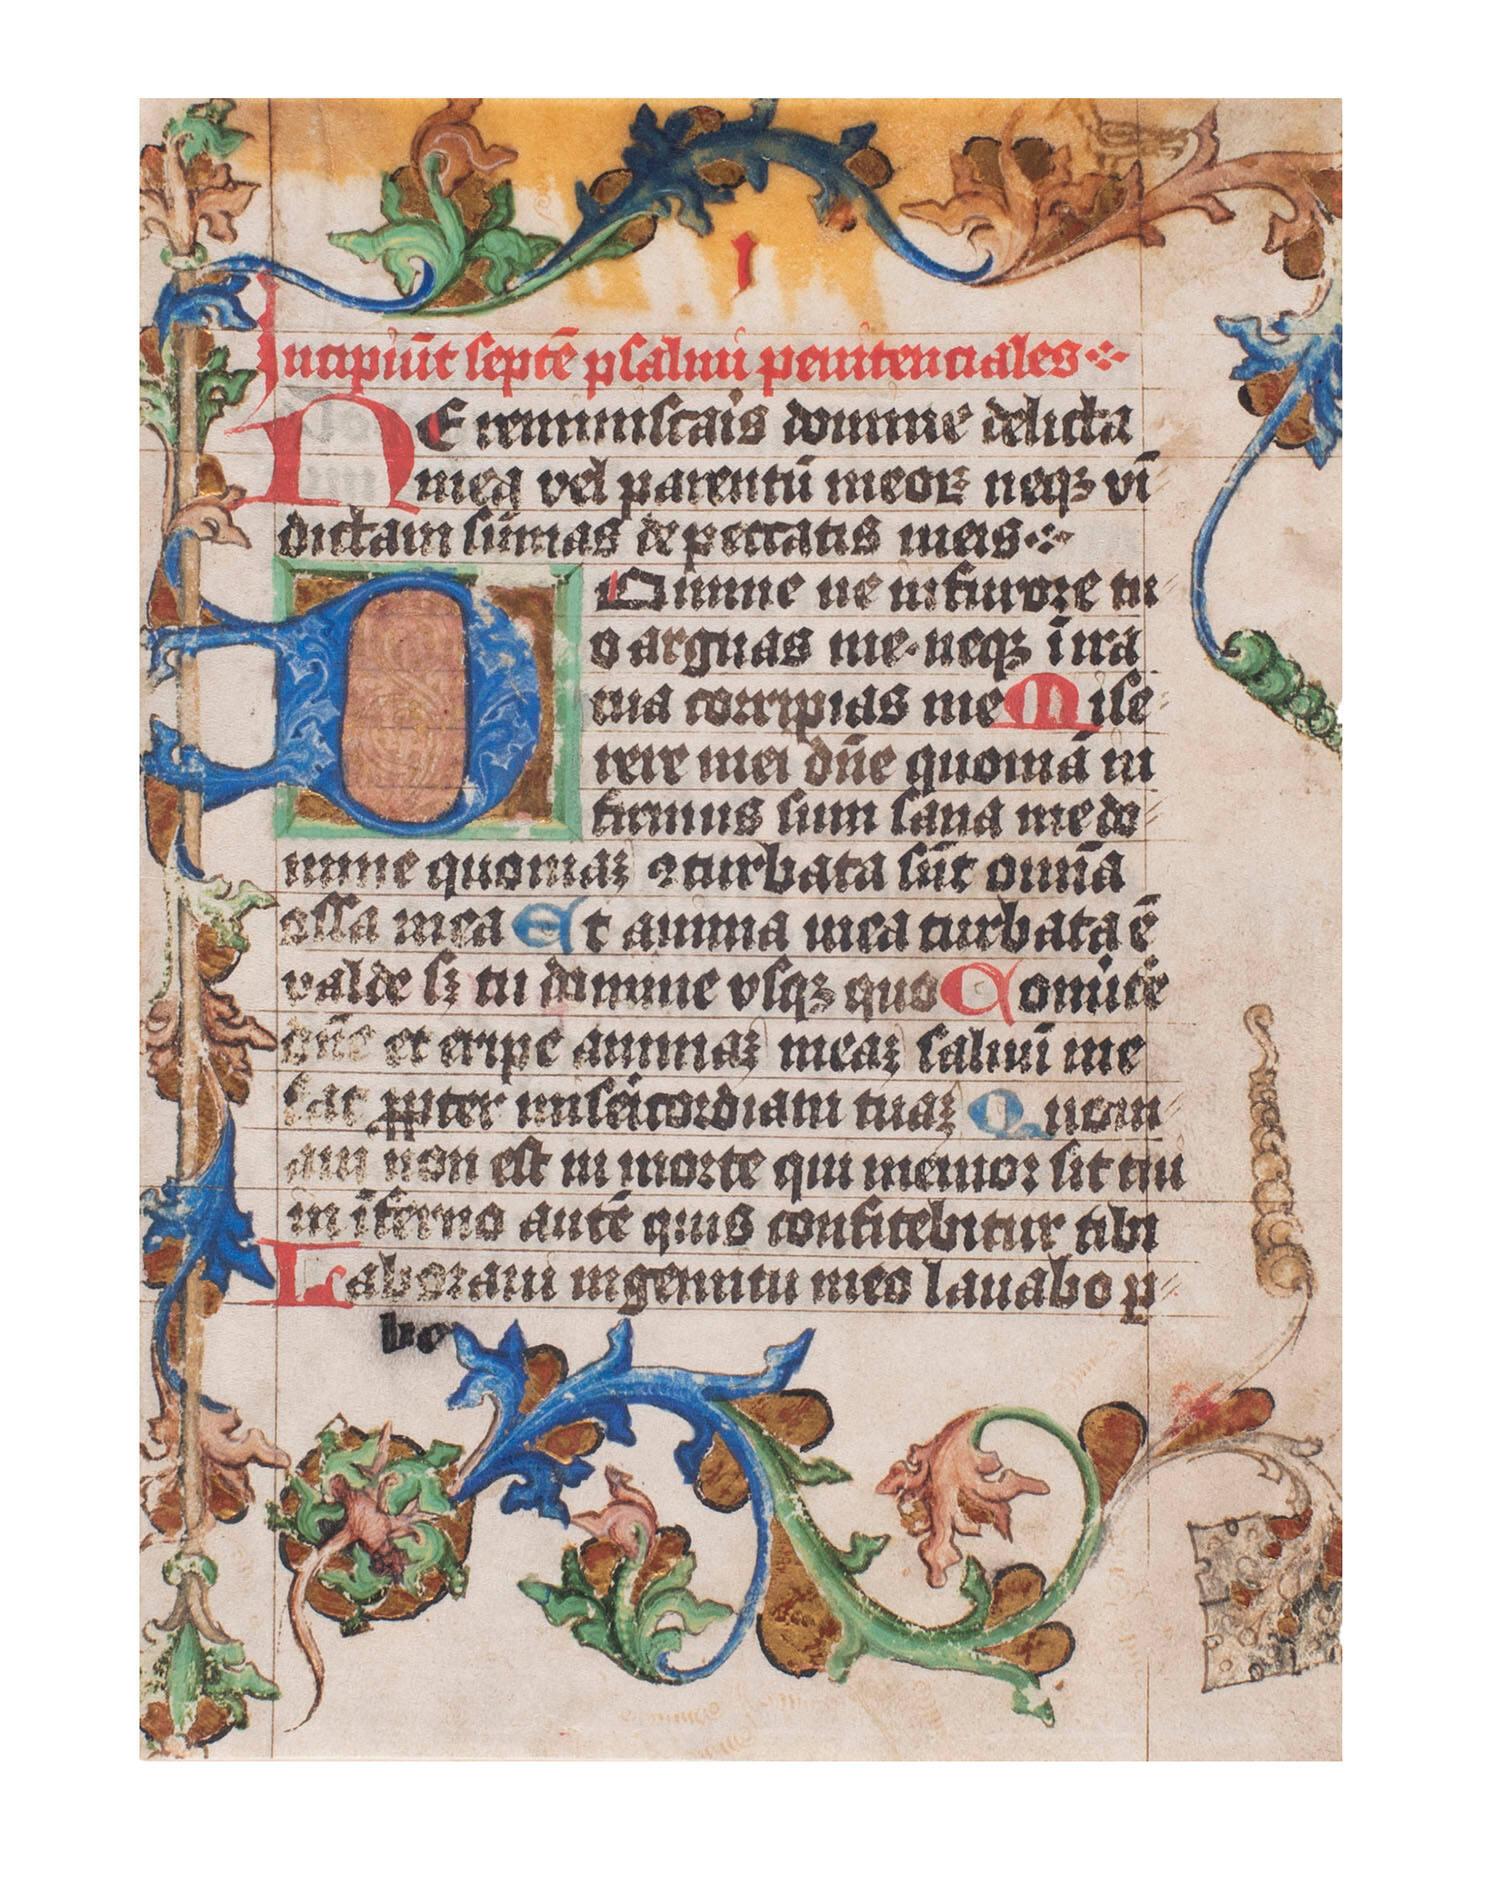 ı
Incipiūt septē psalmi penitenciales
NE reminiscaris domine delicta
mea vel parentū meoꝝ neqꝫ vī
dictam sūmas de peccatis meis
Domine ne in furore tu
o arguas me neqꝫ ī ira
tua corripias me Mise
rere mei dn̄e quoniā in
firmus sum sana me do
mine quoniaꝫ ꝯturbata sūt omīa
ossa mea Et anima mea turbata ē
valde sꝫ tu domine vsqꝫ quo Conuīte
dn̄e et eripe animaꝫ meaꝫ saluū me
fac ꝓpter misericordiam tuaꝫ Quon
iam non est in morte qui memor sit tui
in īferno autē quis confitebitur tibi
Laboraui in gemitu meo lauabo ꝑ